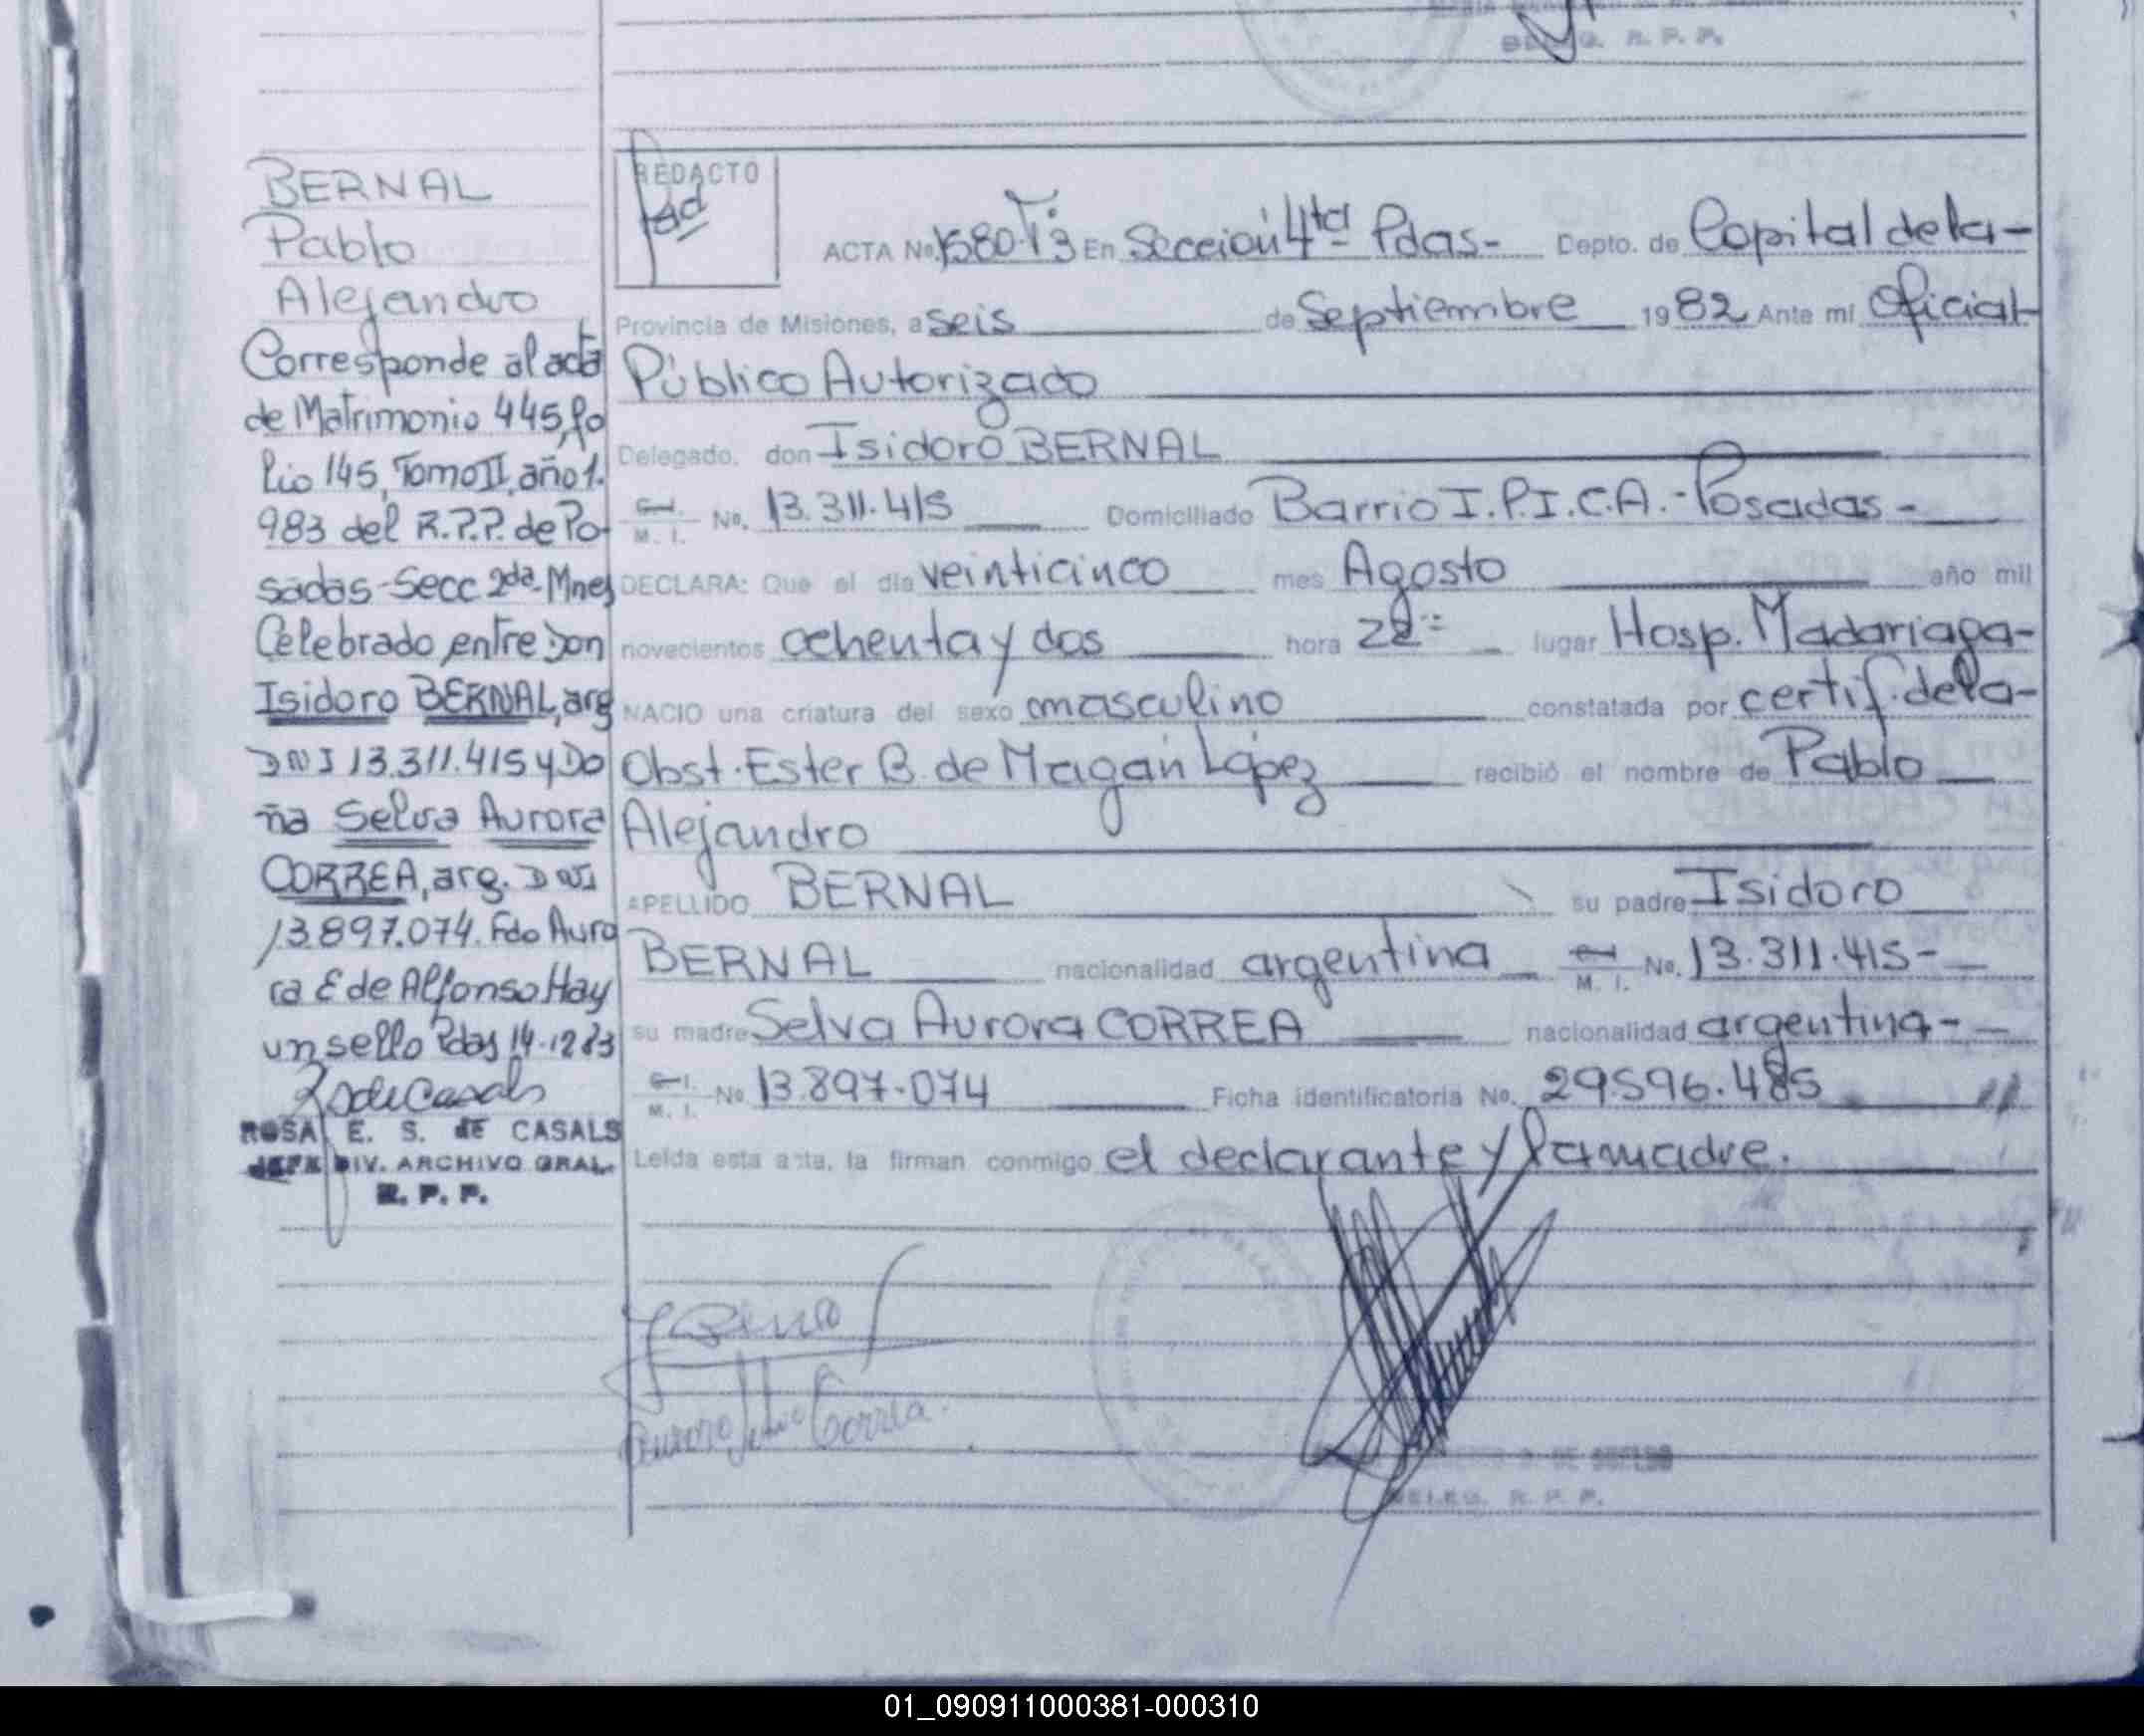 DELEG. R. P. P.
BERNAL
Pablo
Alejandro
Corresponde al acta
de Matrimonio 445, fo
lio 145, Tomo II, año 1.
983 del R.P.P. de Po-
sadas-Secc 2da-Mnes
Celebrado entre Don
Isidoro BERNAL, arg
DNI 13.311.415 y Do
ña Selva Aurora
CORREA, arg. DNI
13.897.074. Fdo Auro
ra E de Alfonso Hay
un sello Pdas 14-12 83
ROSA E. S. de CASALS
JEFE DIV. ARCHIVO GRAL.
R. P. P.
REDACTO
ACTA No. 1580-T3 En Sección 4ta Pdas- Depto. de Capital de la-
Provincia de Misiones, a seis de Septiembre 1982 Ante mi Oficial
Público Autorizado
Delegado, don Isidoro BERNAL
C. I. M. I. No. 13.311.415 Domiciliado Barrio I.P.I.C.A.-Posadas-
DECLARA: Que el día veinticinco mes Agosto año mil
novecientos ochenta y dos hora 22 lugar Hosp. Madariaga-
NACIO una criatura del sexo masculino constatada por certif. de la-
Obst. Ester B. de Magán López recibió el nombre de Pablo
Alejandro
APELLIDO BERNAL su padre Isidoro
BERNAL nacionalidad argentina M. I. No. 13.311.415-
su madre Selva Aurora CORREA nacionalidad argentina-
C. I. M. I. No 13.897-074 Ficha identificatoria No. 29596.485
Leída esta acta, la firman conmigo el declarante y la madre.
Aurora Selva Correa.
DELEG. R. P. P.
01_090911000381-000310